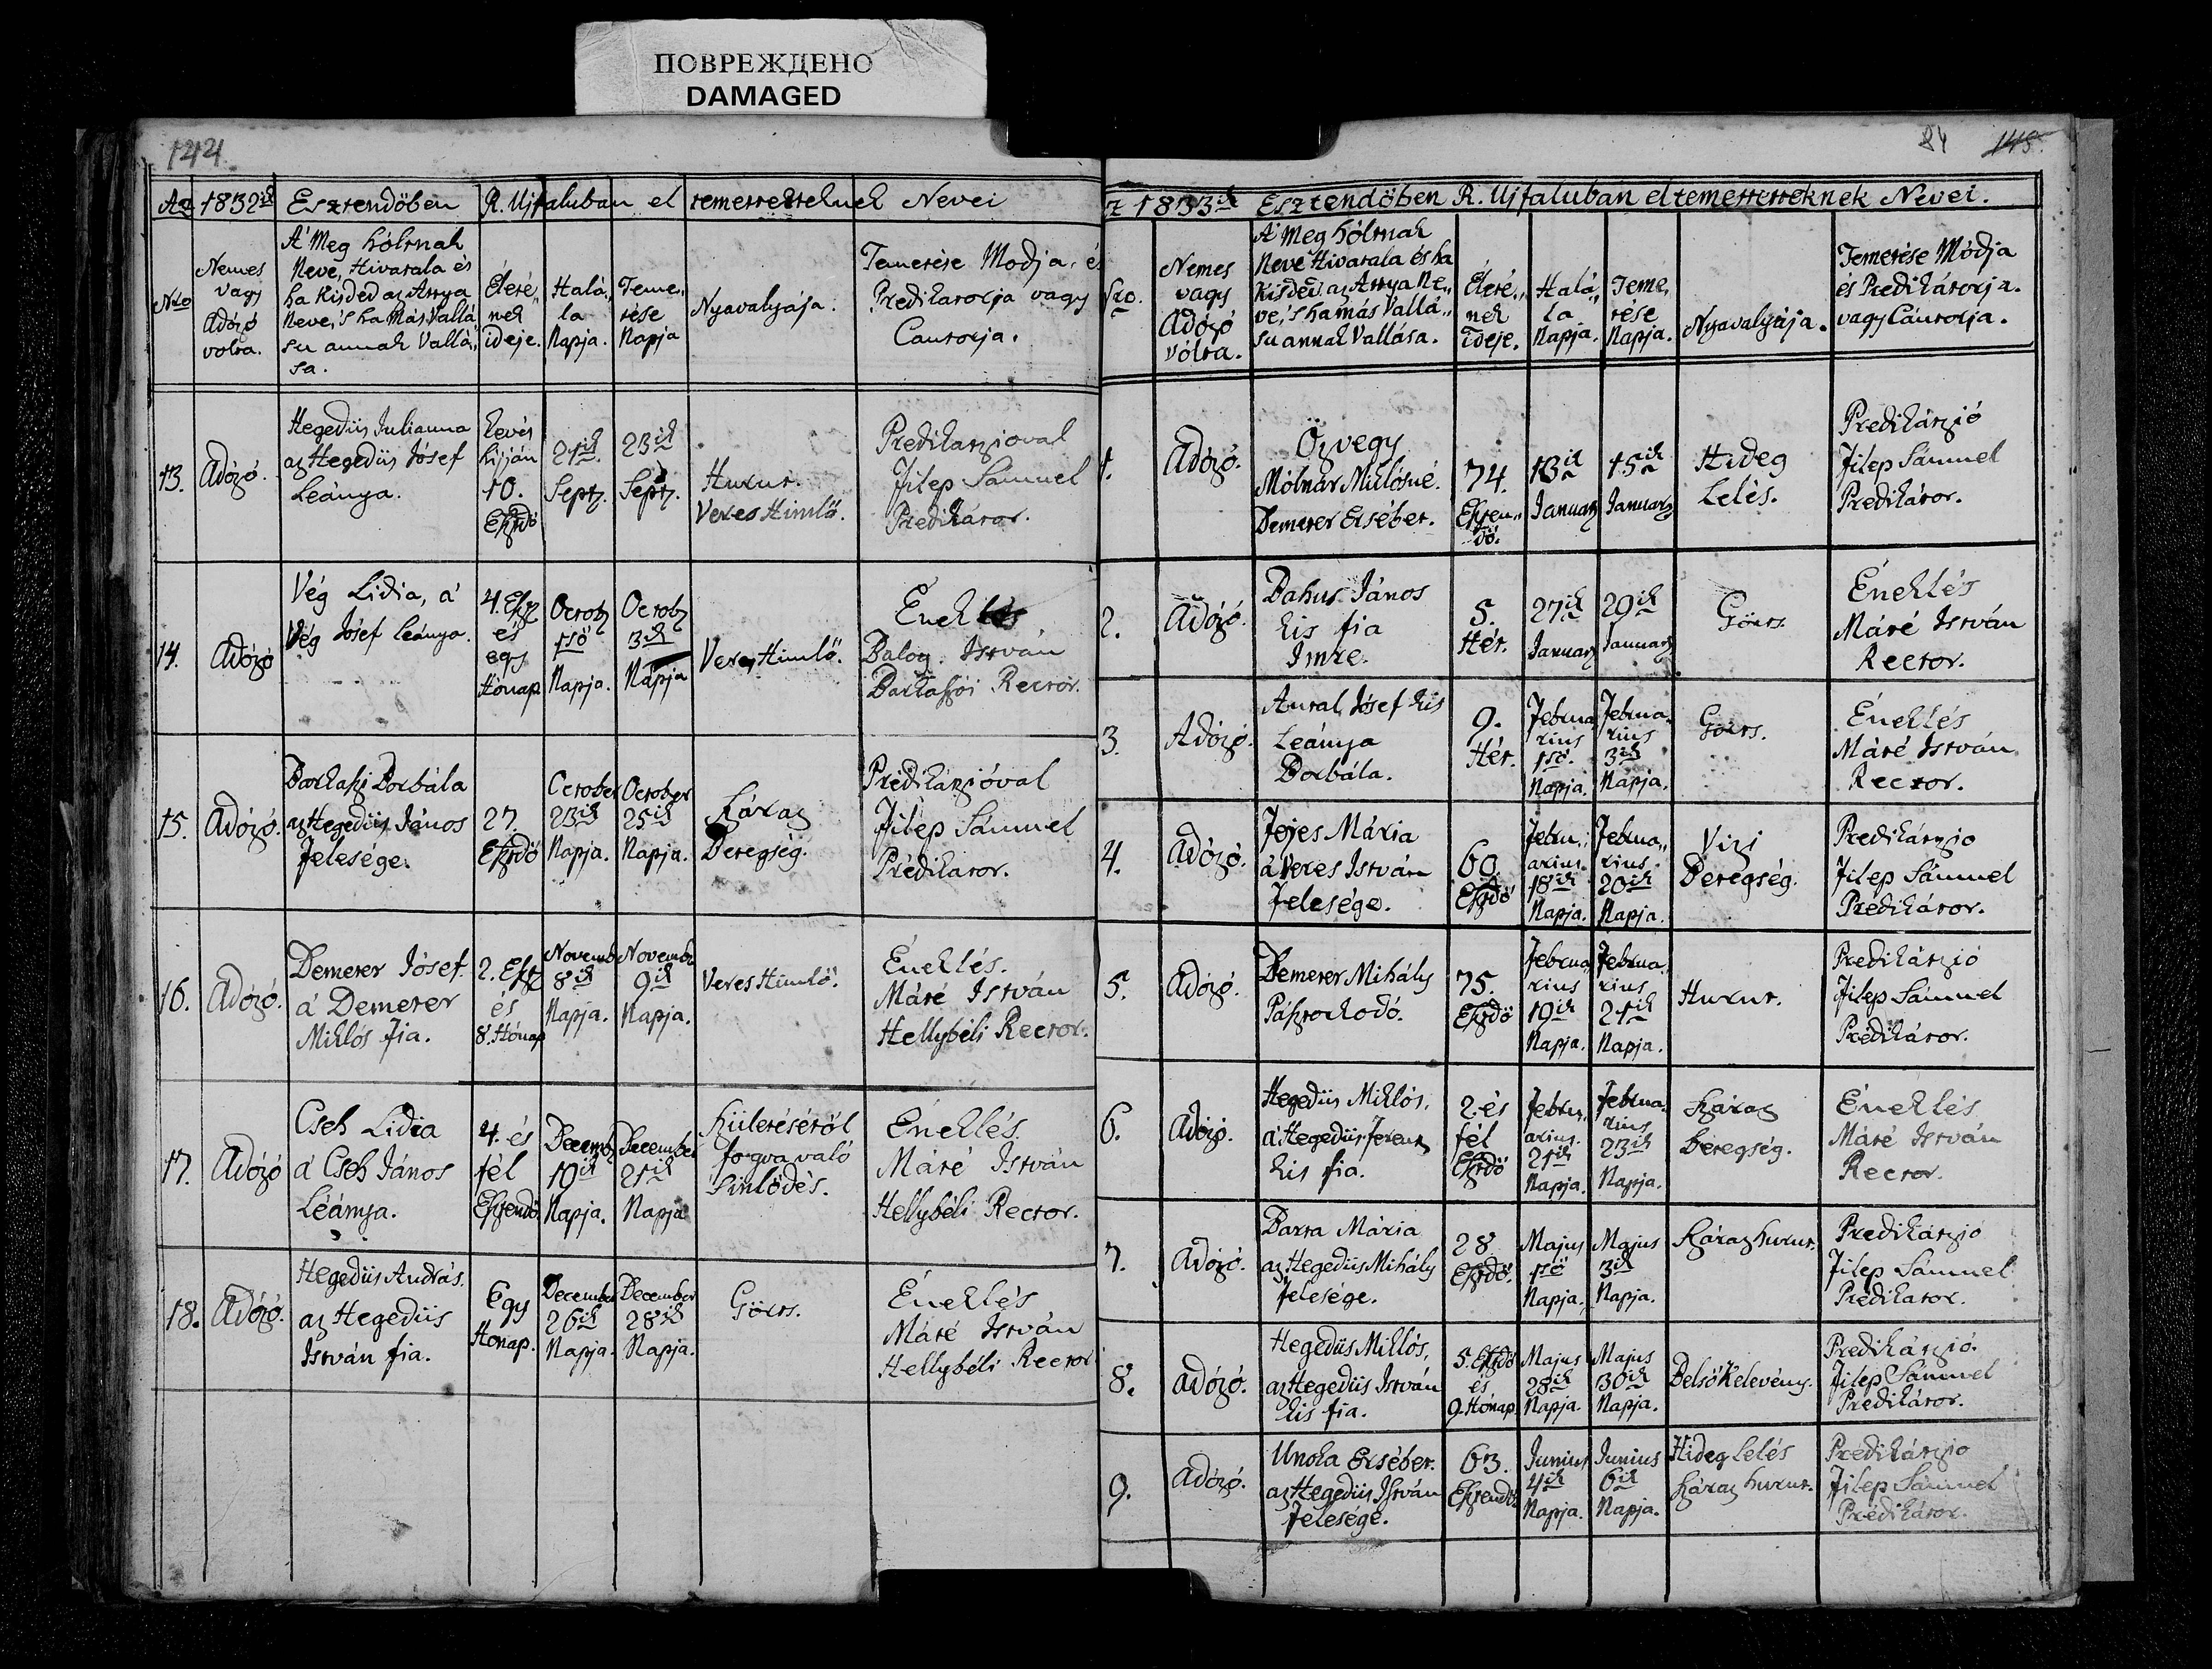 ПОВРЕЖДЕНО
DAMAGED
144.
Az 1832ik Esztendöben R. Ujfaluban el temettetteknek Nevei
Nro
Nemes
vagy
Adózó
volta.
A' Meg hóltnak
Neve, Hivatala és
ha kisded az Attya
Neve, 's ha Más Vallá
su annak Vallá„
sa.
Életé„
nek
ideje.
Halá„
la
Napja.
Teme„
tése
Napja
Nyavalyája.
Temetése Modja, és
Predikatorja vagy
Cantorja.
13.
Adózó.
Hegedüs Julianna
az Hegedüs Jósef
Leánya.
kevés
hijján
10.
Esztdö
21ik
Septz.
23ik
Septz.
Hurut.
Veres Himlö.
Predikatzioval
Filep Sámuel
Predikátor.
14.
Adózó
Vég Lidia, á
Vég Jósef leánya.
4. Esz
és
egy
Hónap
Octobz
1sö
Napja.
Octobz
3ik
Napja
Veres Himlö.
Éneklés
Balog István
Bartaszói Rector.
15.
Adózó.
Bartaszi Borbála
az Hegedüs János
Felesége.
27.
Esztdö
October
23ik
Napja.
October
25ik
Napja.
Száraz
Betegség.
Prédikátzióval
Filep Sámuel
Prédikator.
16.
Adózó.
Demeter Jósef
á Demeter
Miklós fia.
2. Esz
és
8. Hónap
Novemb
8ik
Napja.
Novembz
9ik
Napja.
Veres Himlö.
Éneklés.
Máté István
Hellybéli Rector.
17.
Adózó
Cseh Lidia
á Cseh János
Léánya.
4. és
fél
Esztendö
Decembz
19ik
Napja.
December
21ik
Napja
Születésétöl
fogva való
Sinlödés.
Éneklés.
Máté István
Hellybéli Rector.
18.
Adózó.
Hegedüs András.
az Hegedüs
István fia.
Egy
Honap.
December
26ik
Napja.
December
28ik
Napja.
Görts.
Éneklés
Máté István
Hellybéli Rector
84 145.
z 1833ik Esztendöben R. Ujfaluban eltemettetteknek Nevei.
Nro.
Nemes
vagy
Adózó
vólta.
A' Meg hóltnak
Neve Hivatala és ha
Kisded az Attya Ne„
ve, 's ha más Vallá„
su annak Vallása.
Életé„
nek
Ideje.
Halá„
la
Napja.
Teme„
tése
Napja.
Nyavalyája.
Temetése Módja
és Predikátorja.
vagy Cántorja.
1.
Adózó.
Özvegy
Mólnár Miklósné.
Demeter Ersébet.
74.
Eszten„
dö.
13ik
Januarz
15ik
Januarz
Hideg
Lelés.
Predikátzió
Filep Sámuel
Predikátor.
2.
Adózó.
Bakus János
kis fia
Imre.
5.
Hét.
27ik
Januarz
29ik
Januarz
Görts.
Éneklés
Máté István
Rector.
3.
Adózó.
Antal Jósef kis
Leánya
Borbála.
9.
Hét.
Februa
rius
1sö.
Napja.
Februa„
rius
3ik
Napja.
Görts.
Éneklés
Máté István
Rector.
4.
Adózó.
Fejes Mária
á Veres István
Felesége.
60.
Esztdö
Febru„
arius.
18ik
Napja.
Februa„
rius.
20ik
Napja.
Vizi
Betegség.
Predikátzio
Filep Sámuel
Prédikátor.
5.
Adózó.
Demeter Mihály
75.
Esztdö
Februa„
rius
19ik
Napja.
Februa„
rius
21ik
Napja.
Hurut.
Predikátzió
Filep Sámuel
Prédikátor.
6.
Adózó.
Hegedüs Miklós,
á Hegedüs Ferentz
kis fia.
2. és
fél
Esztdö
Febru„
arius.
21ik
Napja.
Februa„
rius
23ik
Napja.
Száraz
Betegség.
Éneklés
Máté István
Rector.
7.
Adózó.
Barta Mária
az Hegedüs Mihály
felesége.
28
Esztdö.
Majus
1sö
Napja.
Majus
3ik
Napja.
Száraz hurut.
Predikátzió
Filep Sámuel
Predikator.
8.
Adózó.
Hegedüs Miklós,
az Hegedüs István
kis fia.
5. Esztdö
és
9. Hónap.
Majus
28ik
Napja
Majus
30ik
Napja.
Belsö Kelevény.
Predikátzió.
Filep Sámuel
Prédikátor.
9.
Adózó.
Unoka Ersébet.
az Hegedüs István
Felesége.
63.
Esztendö.
Junius
4ik
Napja.
Junius
6ik
Napja.
Hideg lelés
száraz hurut.
Predikátzio
Filep Sámuel
Prédikátor.